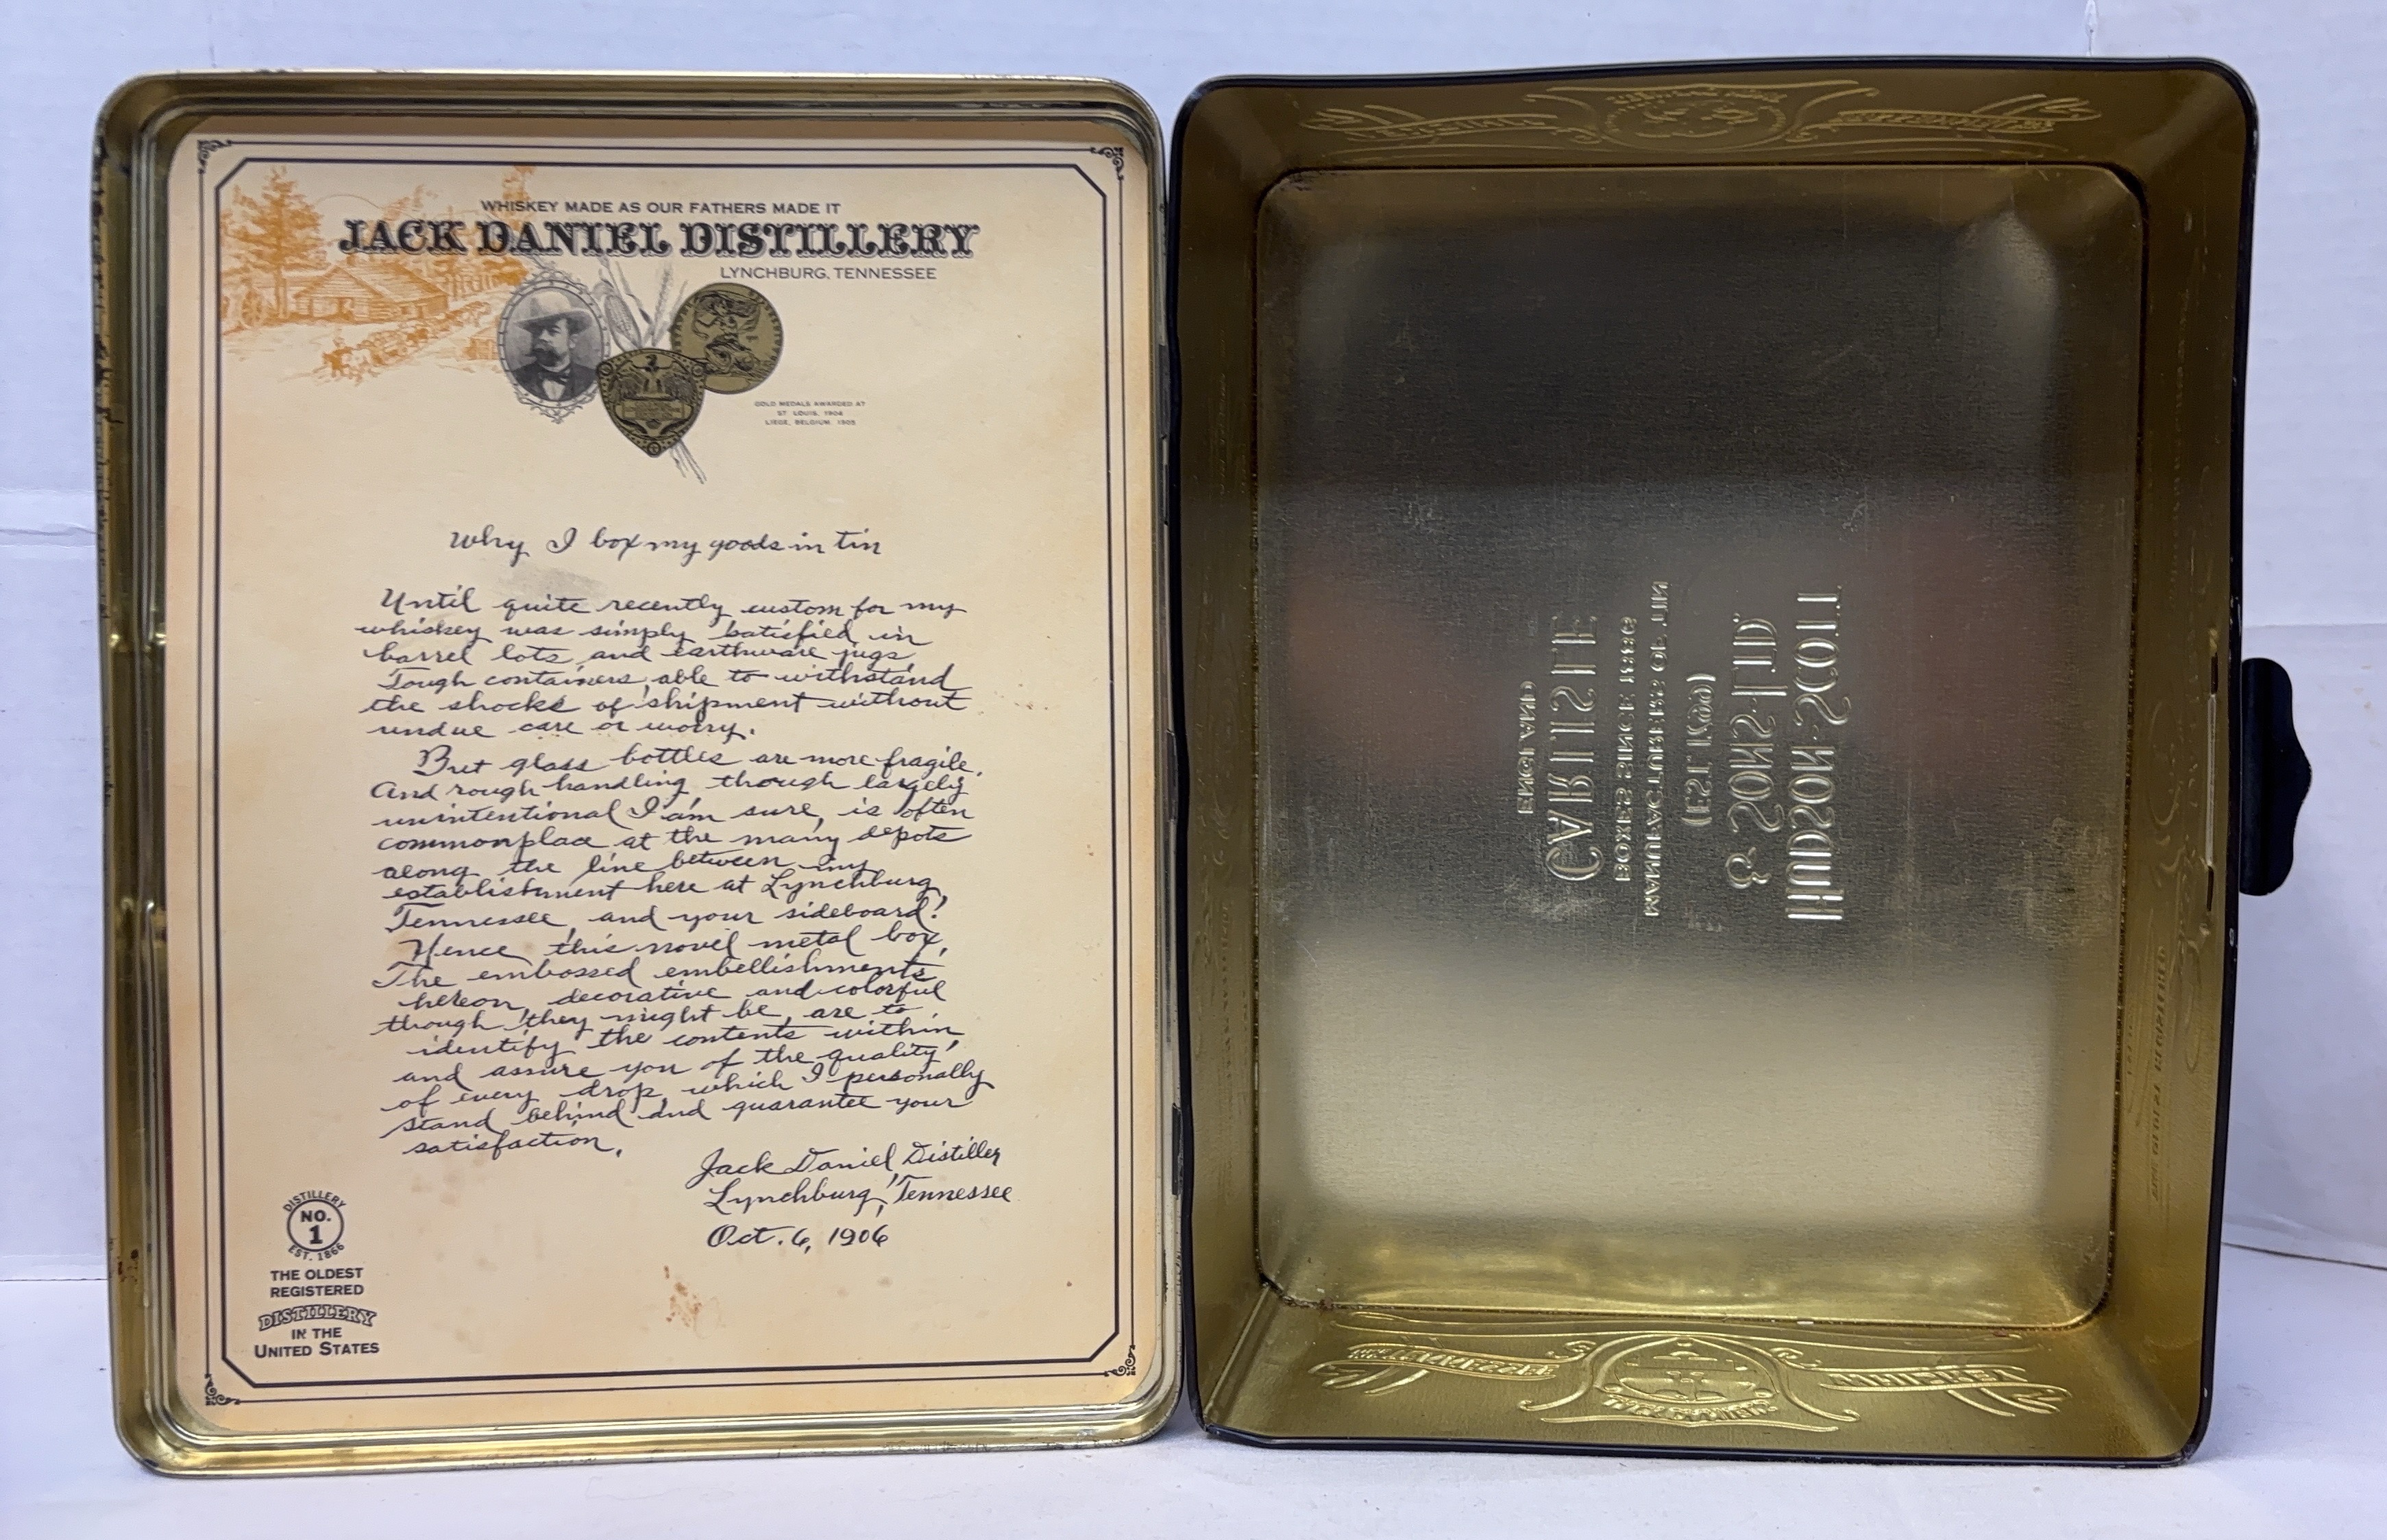 WHISKEY MADE AS OUR FATHERS MADE IT
JACK DANIEL DISTILLERY
LYNCHBURG, TENNESSEE
GOLD MEDALS AWARDED AT
ST. LOUIS, 1904
LIEGE, BELGIUM, 1905
Why I box my goods in tin
Until quite recently custom for my
whiskey was simply satisfied in
barrel lots and earthware jugs.
Tough containers, able to withstand
the shocks of shipment without
undue care or worry.
But glass bottles are more fragile.
And rough handling though largely
unintentional I am sure, is often
commonplace at the many depots
along the line between my
establishment here at Lynchburg,
Tennessee, and your sideboard.
Hence this novel metal box.
The embossed embellishments
hereon, decorative and colorful
though they might be, are to
identify the contents within,
and assure you of the quality
of every drop, which I personally
stand behind and guarantee your
satisfaction.
Jack Daniel, Distiller
Lynchburg, Tennessee
Oct. 6, 1906
DISTILLERY
NO.
1
EST. 1866
THE OLDEST
REGISTERED
DISTILLERY
IN THE
UNITED STATES
HUDSON SCOTT
& SONS LTD.
(EST. 1799)
MANUFACTURERS OF TIN
BOXES SINCE 1886
CARLISLE
ENGLAND
TENNESSEE
WHISKEY